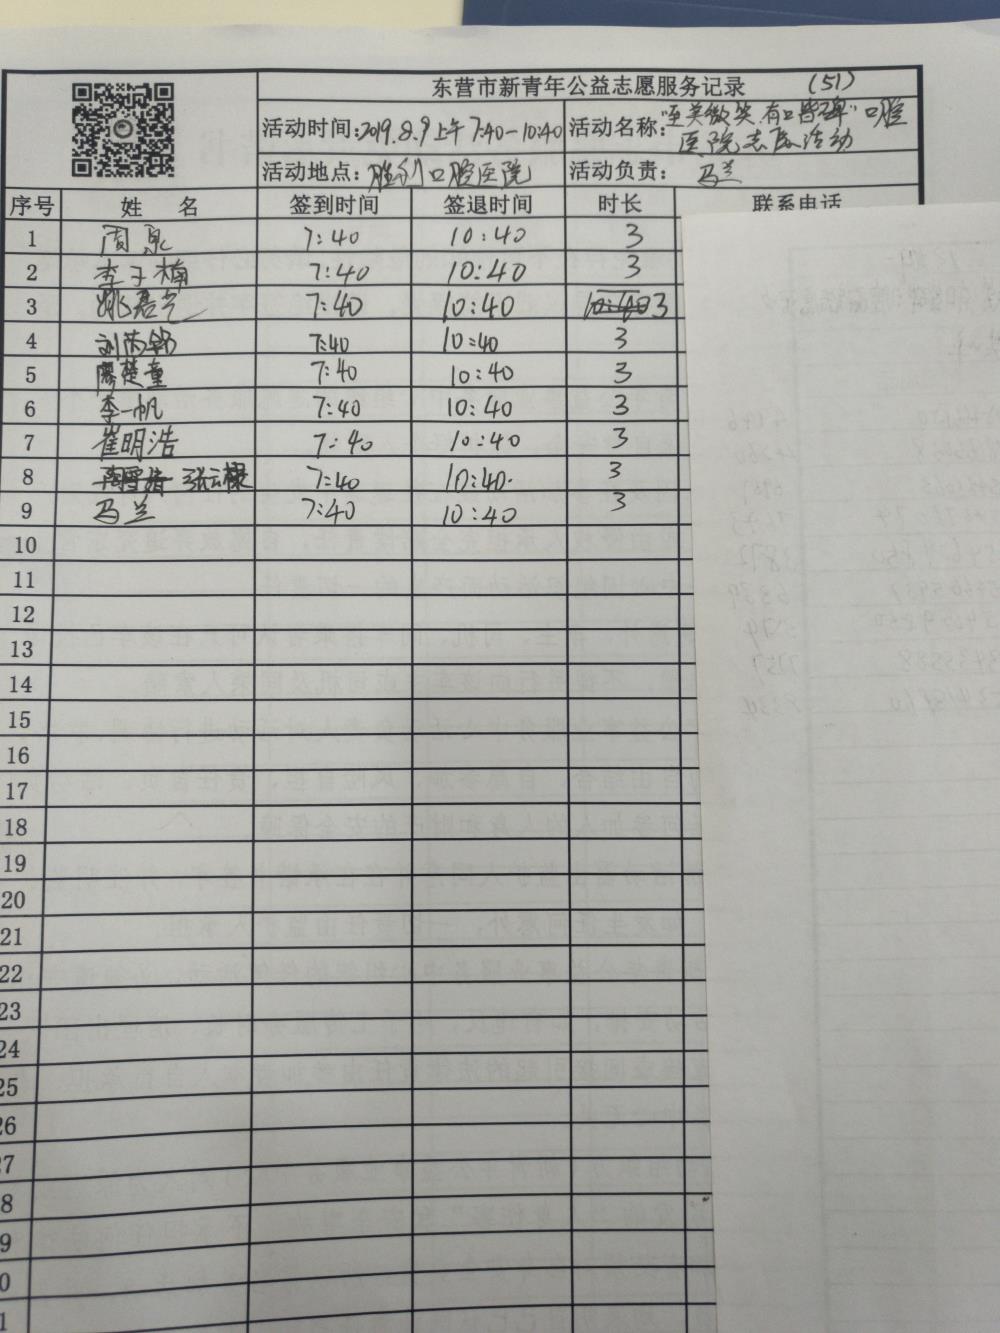 东营市新青年公益志愿服务记录 (51)
活动时间:2019.8.9上午7:40-10:40 活动名称:"至美微笑 有口皆碑"口腔
医院志愿活动
活动地点: 胜利口腔医院 活动负责: 马兰
序号 姓 名 签到时间 签退时间 时长 联系电话
1 周泉 7:40 10:40 3
2 李子楠 7:40 10:40 3
3 姚嘉艺 7:40 10:40 10:40 3
4 刘 7:40 10:40 3
5 廖楚童 7:40 10:40 3
6 李一帆 7:40 10:40 3
7 崔明浩 7:40 10:40 3
8 7:40 10:40. 3
9 马兰 7:40 10:40 3
10
11
12
13
14
15
16
17
18
19
20
21
22
23
24
25
26
27
8
9
0
1